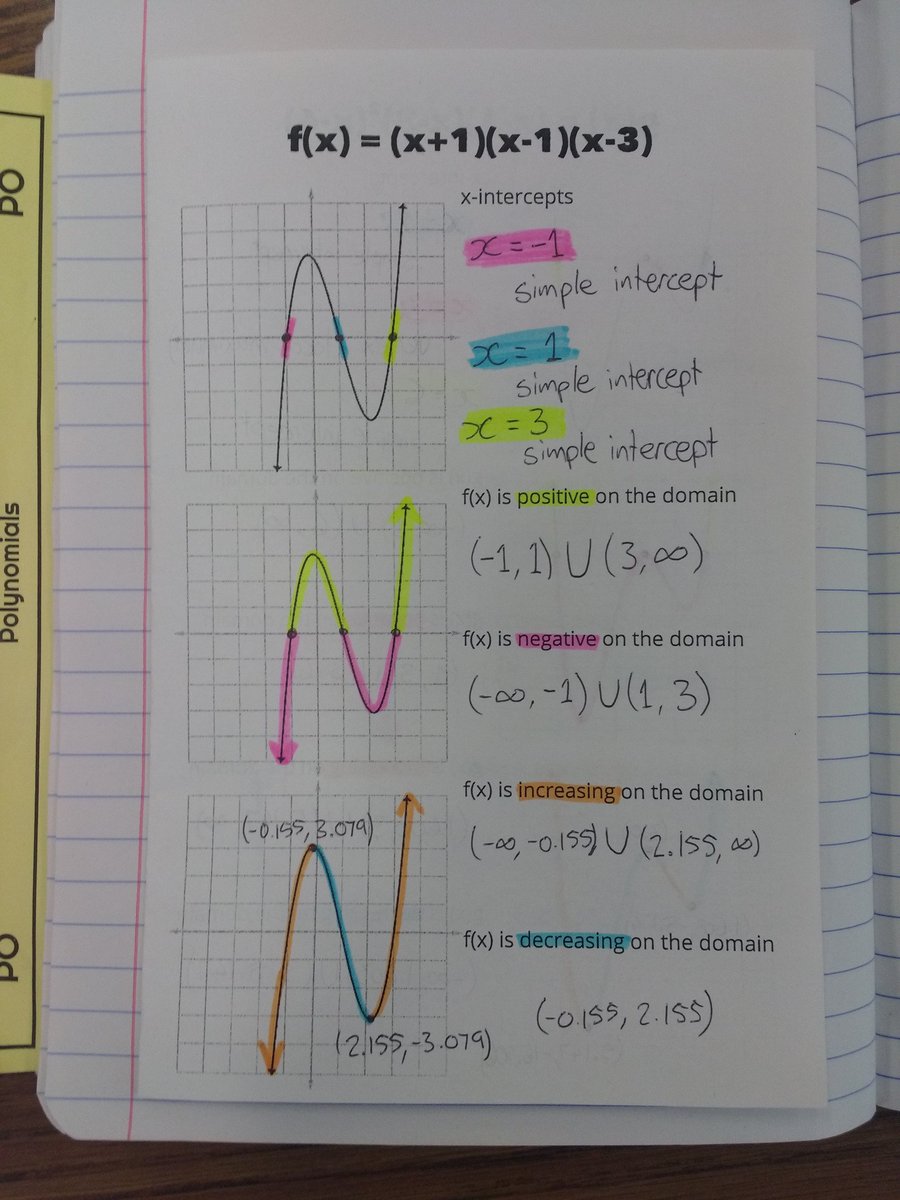 PO
Polynomials
PO
f(x) = (x+1)(x-1)(x-3)
x-intercepts
x = -1
simple intercept
x = 1
simple intercept
x = 3
simple intercept
f(x) is positive on the domain
(-1, 1) ∪ (3, ∞)
f(x) is negative on the domain
(-∞, -1) ∪ (1, 3)
f(x) is increasing on the domain
(-0.155, 3.079)
(-∞, -0.155) ∪ (2.155, ∞)
f(x) is decreasing on the domain
(-0.155, 2.155)
(2.155, -3.079)